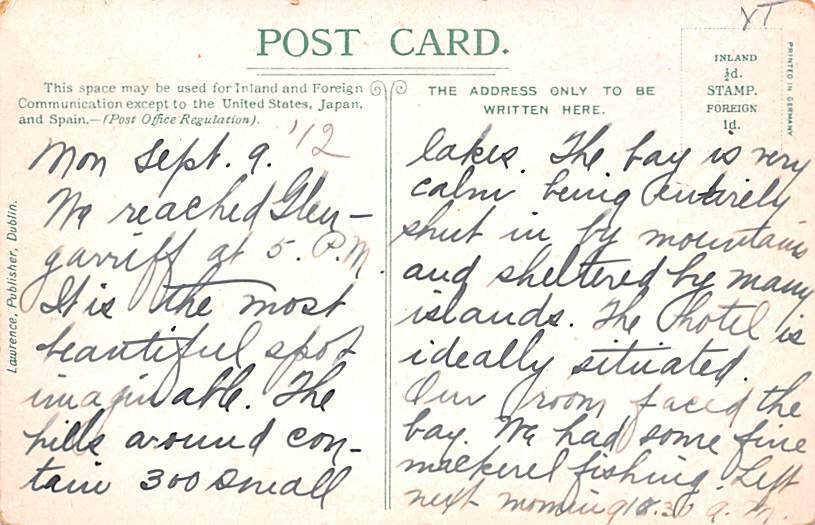 XT
POST CARD.
This space may be used for Inland and Foreign
Communication except to the United States, Japan,
and Spain.—(Post Office Regulation).
THE ADDRESS ONLY TO BE
WRITTEN HERE.
INLAND
½d.
STAMP.
FOREIGN
1d.
PRINTED IN GERMANY
Lawrence, Publisher, Dublin.
Mon Sept. 9. '12
We reached Glen-
garriff at 5. P.M.
It is the most
beautiful spot
imaginable. The
hills around con-
tain 300 small
lakes. The bay is very
calm being entirely
shut in by mountains
and sheltered by many
islands. The hotel is
ideally situated.
Our room faced the
bay. We had some fine
mackerel fishing. Left
next morning 8.30 a.m.